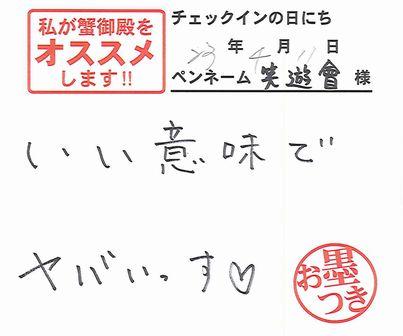 私が蟹御殿を
オススメ
します!!
チェックインの日にち
23年4月11日
ペンネーム 笑遊會 様
いい意味で
ヤバいっす♡
お墨つき